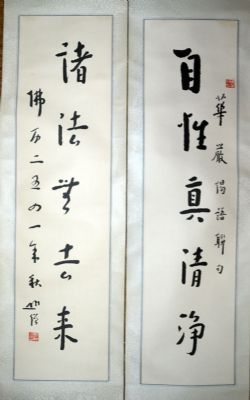 華嚴偈語聯句
自性真清净
諸法無去來
佛历二五四一年秋